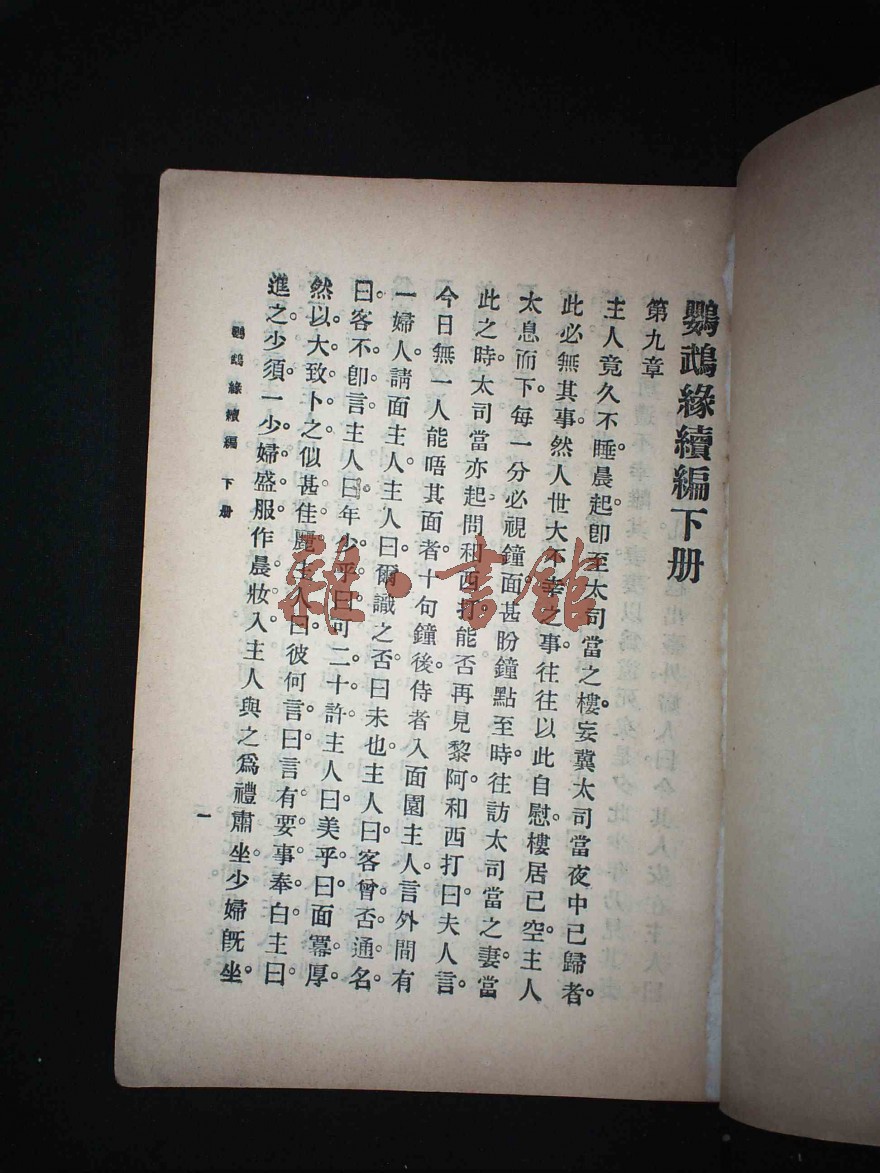 鸚鵡緣續編下册
第九章
主人竟久不睡。晨起卽至太司當之樓。妄冀太司當夜中已歸者。
此必無其事。然人世大不幸之事。往往以此自慰。樓居已空。主人
太息而下。每一分必視鐘面。甚盼鐘點至時。往訪太司當之妻。當
此之時。太司當亦起。問和西打能否再見黎阿。和西打曰。夫人言
今日無一人能晤其面者。十句鐘後。侍者入面園主人。言外間有
一婦人。請面主人。主人曰。爾識之否。曰未也。主人曰。客曾否通名。
曰。客不卽言。主人曰。年少乎。曰可二十許。主人曰。美乎。曰面冪厚
然以大致卜之。似甚佳麗。主人曰。彼何言。曰言有要事奉白。主曰
進之。少須。一少婦盛服作晨妝入。主人與之爲禮。肅坐。少婦旣坐。
鸚鵡緣續編 下册
一
雜·書館